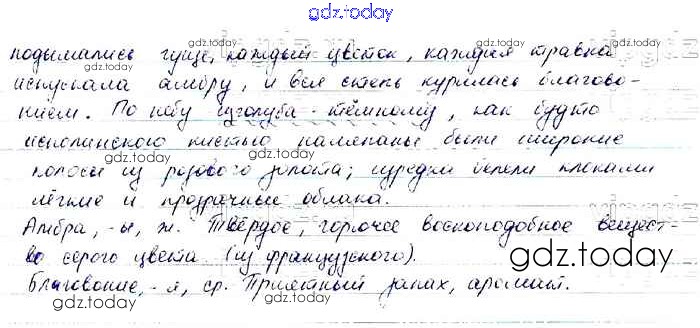 gdz.today
подымались гуще, каждый цветок, каждая травка
испускала амбру, и вся степь курилась благово-
нием. По небу изголуба-тёмному, как будто
исполинского кистью наляпаны были широкие
полосы из розового золота; изредка белели клоками
лёгкие и прозрачные облака.
Амбра, -ы, ж. Твёрдое, горючее воскоподобное вещест-
во серого цвета (из французского).
Благовоние, -я, ср. Приятный запах, аромат.
gdz.today